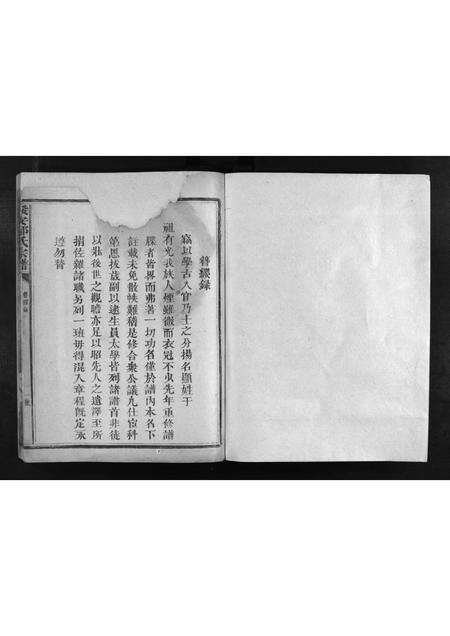 簪纓錄
竊以學古入官乃士之分揚名顯姓于
祖有光我族人煙雖微而衣冠不乏先年重修譜
牒者皆畧而弗著一切功名僅於譜内本名下
註載未免散帙難稽是修合眾公議凡仕宦科
第恩拔歲副以逮生員太學皆列諸譜首非徒
以壯後世之觀瞻亦足以昭先人之遺澤至所
捐佐雜諸職另列一班毋得混入章程既定永
遵勿替
氏宗譜